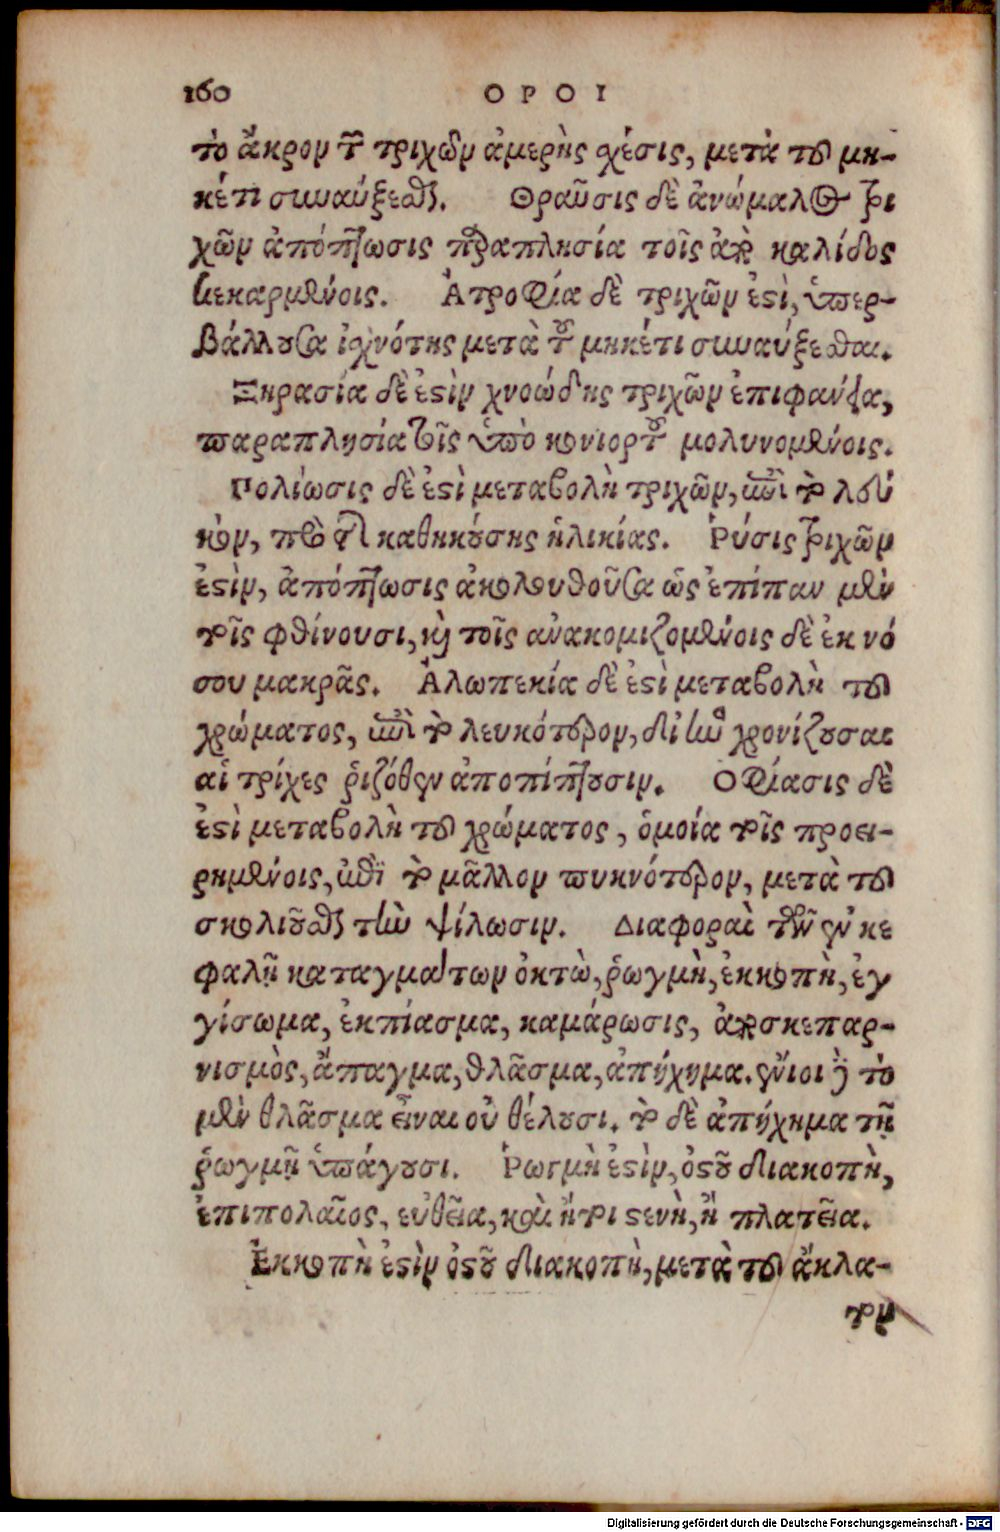 160 ΟΡΟΙ
τὸ ἄκρον τῶν τριχῶν ἀμερὴς σχέσις, μετὰ τοῦ μη-
κέτι συναύξεσθαι. Θραῦσις δὲ ἀνώμαλος τρι
χῶν ἀπόπτωσις παραπλησία τοῖς ἀπὸ ψαλίδος
κεκαρμένοις. Ἀτροφία δὲ τριχῶν ἐστὶ, ὑπερ-
βάλλουσα ἰχνότης μετὰ τοῦ μηκέτι συναύξεσθαι.
Ξηρασία δὲ ἐστὶν χνοώδης τριχῶν ἐπιφάνεια,
παραπλησία τοῖς ὑπὸ κονιορτοῦ μολυνομένοις.
Πολίωσις δὲ ἐστὶ μεταβολὴ τριχῶν, ἐπὶ τὸ λευ
κὸν, πρὸ τῆς καθηκούσης ἡλικίας. Ῥύσις τριχῶν
ἐστὶν, ἀπόπτωσις ἀκολουθοῦσα ὡς ἐπίπαν μὲν
τοῖς φθίνουσι, καὶ τοῖς ἀνακομιζομένοις δὲ ἐκ νό
σου μακρᾶς. Ἀλωπεκία δὲ ἐστὶ μεταβολὴ τοῦ
χρώματος, ἐπὶ τὸ λευκότερον, δι’ ἣν χρονίζουσαι
αἱ τρίχες ῥιζόθεν ἀποπίπτουσιν. Οφίασις δὲ
ἐστὶ μεταβολὴ τοῦ χρώματος, ὁμοία τοῖς προει-
ρημένοις, ἐπὶ τὸ μᾶλλον πυκνότερον, μετὰ τοῦ
σκολιοῦσθαι τὴν ψίλωσιν. Διαφοραὶ τῶν ἐν κε
φαλῇ καταγμάτων ὀκτὼ, ῥωγμὴ, ἐκκοπὴ, ἐγ
γίσωμα, ἐκπίασμα, καμάρωσις, ἀποσκεπαρ-
νισμὸς, ἄπαγμα, θλᾶσμα, ἀπήχημα. ἔνιοι δὲ τὸ
μὲν θλᾶσμα εἶναι οὐ θέλουσι. τὸ δὲ ἀπήχημα τῇ
ῥωγμῇ ὑπάγουσι. Ῥωγμὴ ἐστὶν, ὀστοῦ διακοπὴ,
ἐπιπολαῖος, εὐθεῖα, καὶ ἤτοι στενὴ, ἢ πλατεῖα.
Ἐκκοπὴ ἐστὶν ὀστοῦ διακοπὴ, μετὰ τοῦ ἄκλα-
τον
Digitalisierung gefördert durch die Deutsche Forschungsgemeinschaft - DFG